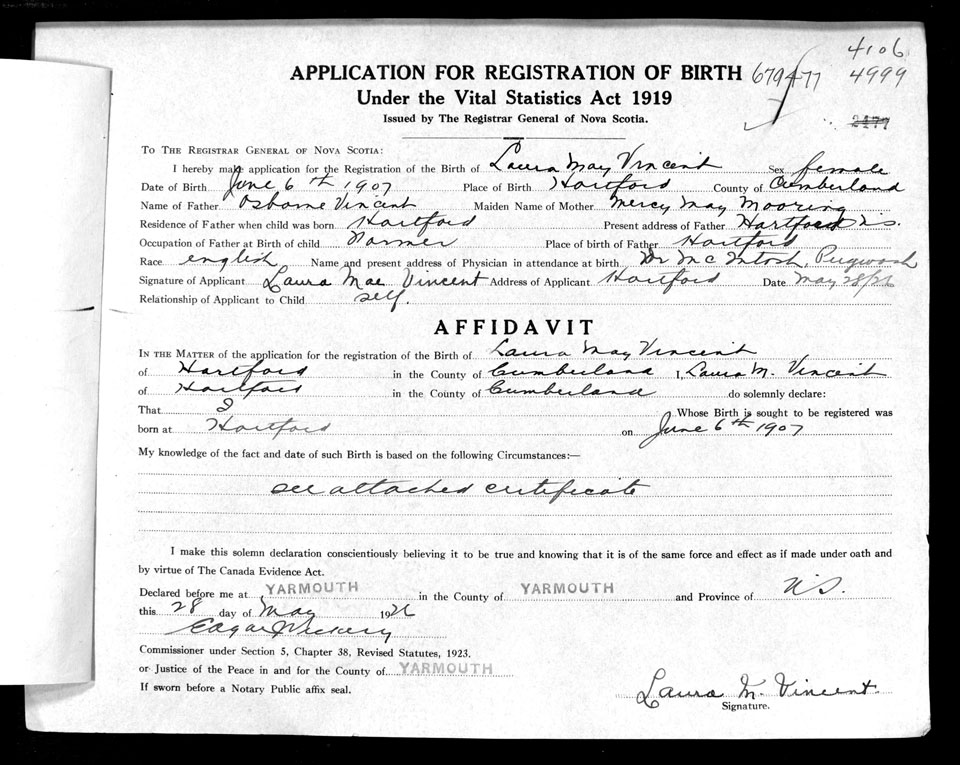 4106
APPLICATION FOR REGISTRATION OF BIRTH 679477 4999
Under the Vital Statistics Act 1919
Issued by The Registrar General of Nova Scotia.
To The Registrar General of Nova Scotia:
I hereby make application for the Registration of the Birth of Laura May Vincent Sex female
Date of Birth June 6th 1907 Place of Birth Hartford County of Cumberland
Name of Father Osborne Vincent Maiden Name of Mother Mercy May Mooring
Residence of Father when child was born Hartford Present address of Father Hartford N.S.
Occupation of Father at Birth of child Farmer Place of birth of Father Hartford
Race english Name and present address of Physician in attendance at birth Dr McIntosh, Pugwash
Signature of Applicant Laura Mae Vincent Address of Applicant Hartford Date May 28/26
Relationship of Applicant to Child self.
AFFIDAVIT
In the Matter of the application for the registration of the Birth of Laura May Vincent
of Hartford in the County of Cumberland I, Laura M. Vincent
of Hartford in the County of Cumberland do solemnly declare:
That I Whose Birth is sought to be registered was
born at Hartford on June 6th 1907
My knowledge of the fact and date of such Birth is based on the following Circumstances:—
see attached certificate
I make this solemn declaration conscientiously believing it to be true and knowing that it is of the same force and effect as if made under oath and
by virtue of The Canada Evidence Act.
Declared before me at YARMOUTH in the County of YARMOUTH and Province of N.S.
this 28 day of May 1926
Edgar Vickery
Commissioner under Section 5, Chapter 38, Revised Statutes, 1923.
or Justice of the Peace in and for the County of YARMOUTH
If sworn before a Notary Public affix seal.
Laura M. Vincent
Signature.